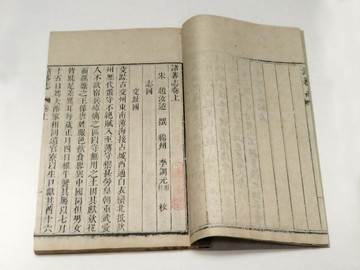 諸蕃志卷上
宋 趙汝适 撰 綿州 李調元 校
志國
交趾國
交趾古交州東南薄海接占城西通白衣蠻北抵欽
州歷代置守不絕賦入至薄守禦甚勞皇朝重武愛
人不欲宿兵瘴癘之區以守無用之土因其獻款從
而羈縻之王係唐姓服色飲食略與中國同但男女
皆跣足差異耳每歲正月四日椎牛饗其屬以七月
十五日為大節家相問遺官寮以生口獻其酋十六